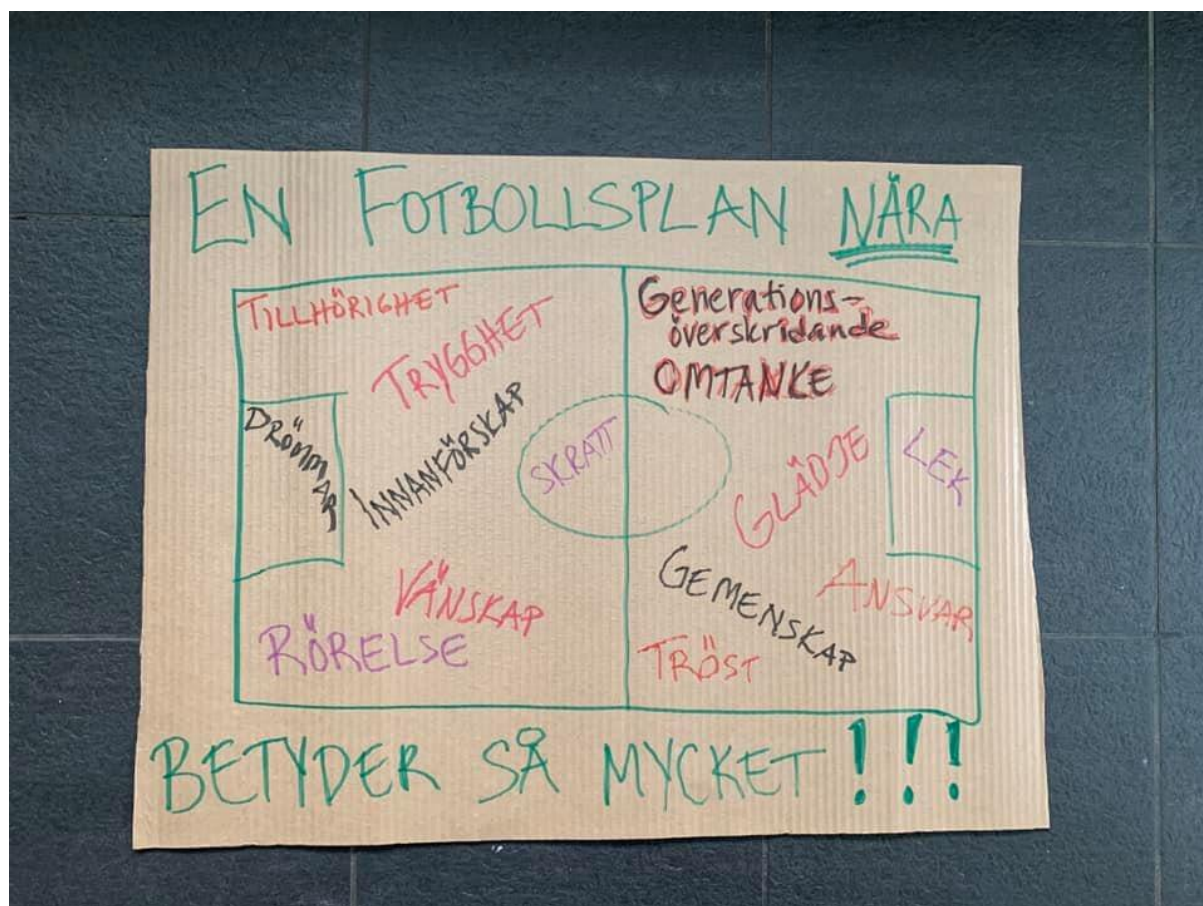 EN FOTBOLLSPLAN NÄRA
TILLHÖRIGHET
TRYGGHET
DRÖMMAR
INNANFÖRSKAP
SKRATT
VÄNSKAP
RÖRELSE
Generations-
överskridande
OMTANKE
GLÄDJE
LEK
GEMENSKAP
ANSVAR
TRÖST
BETYDER SÅ MYCKET !!!